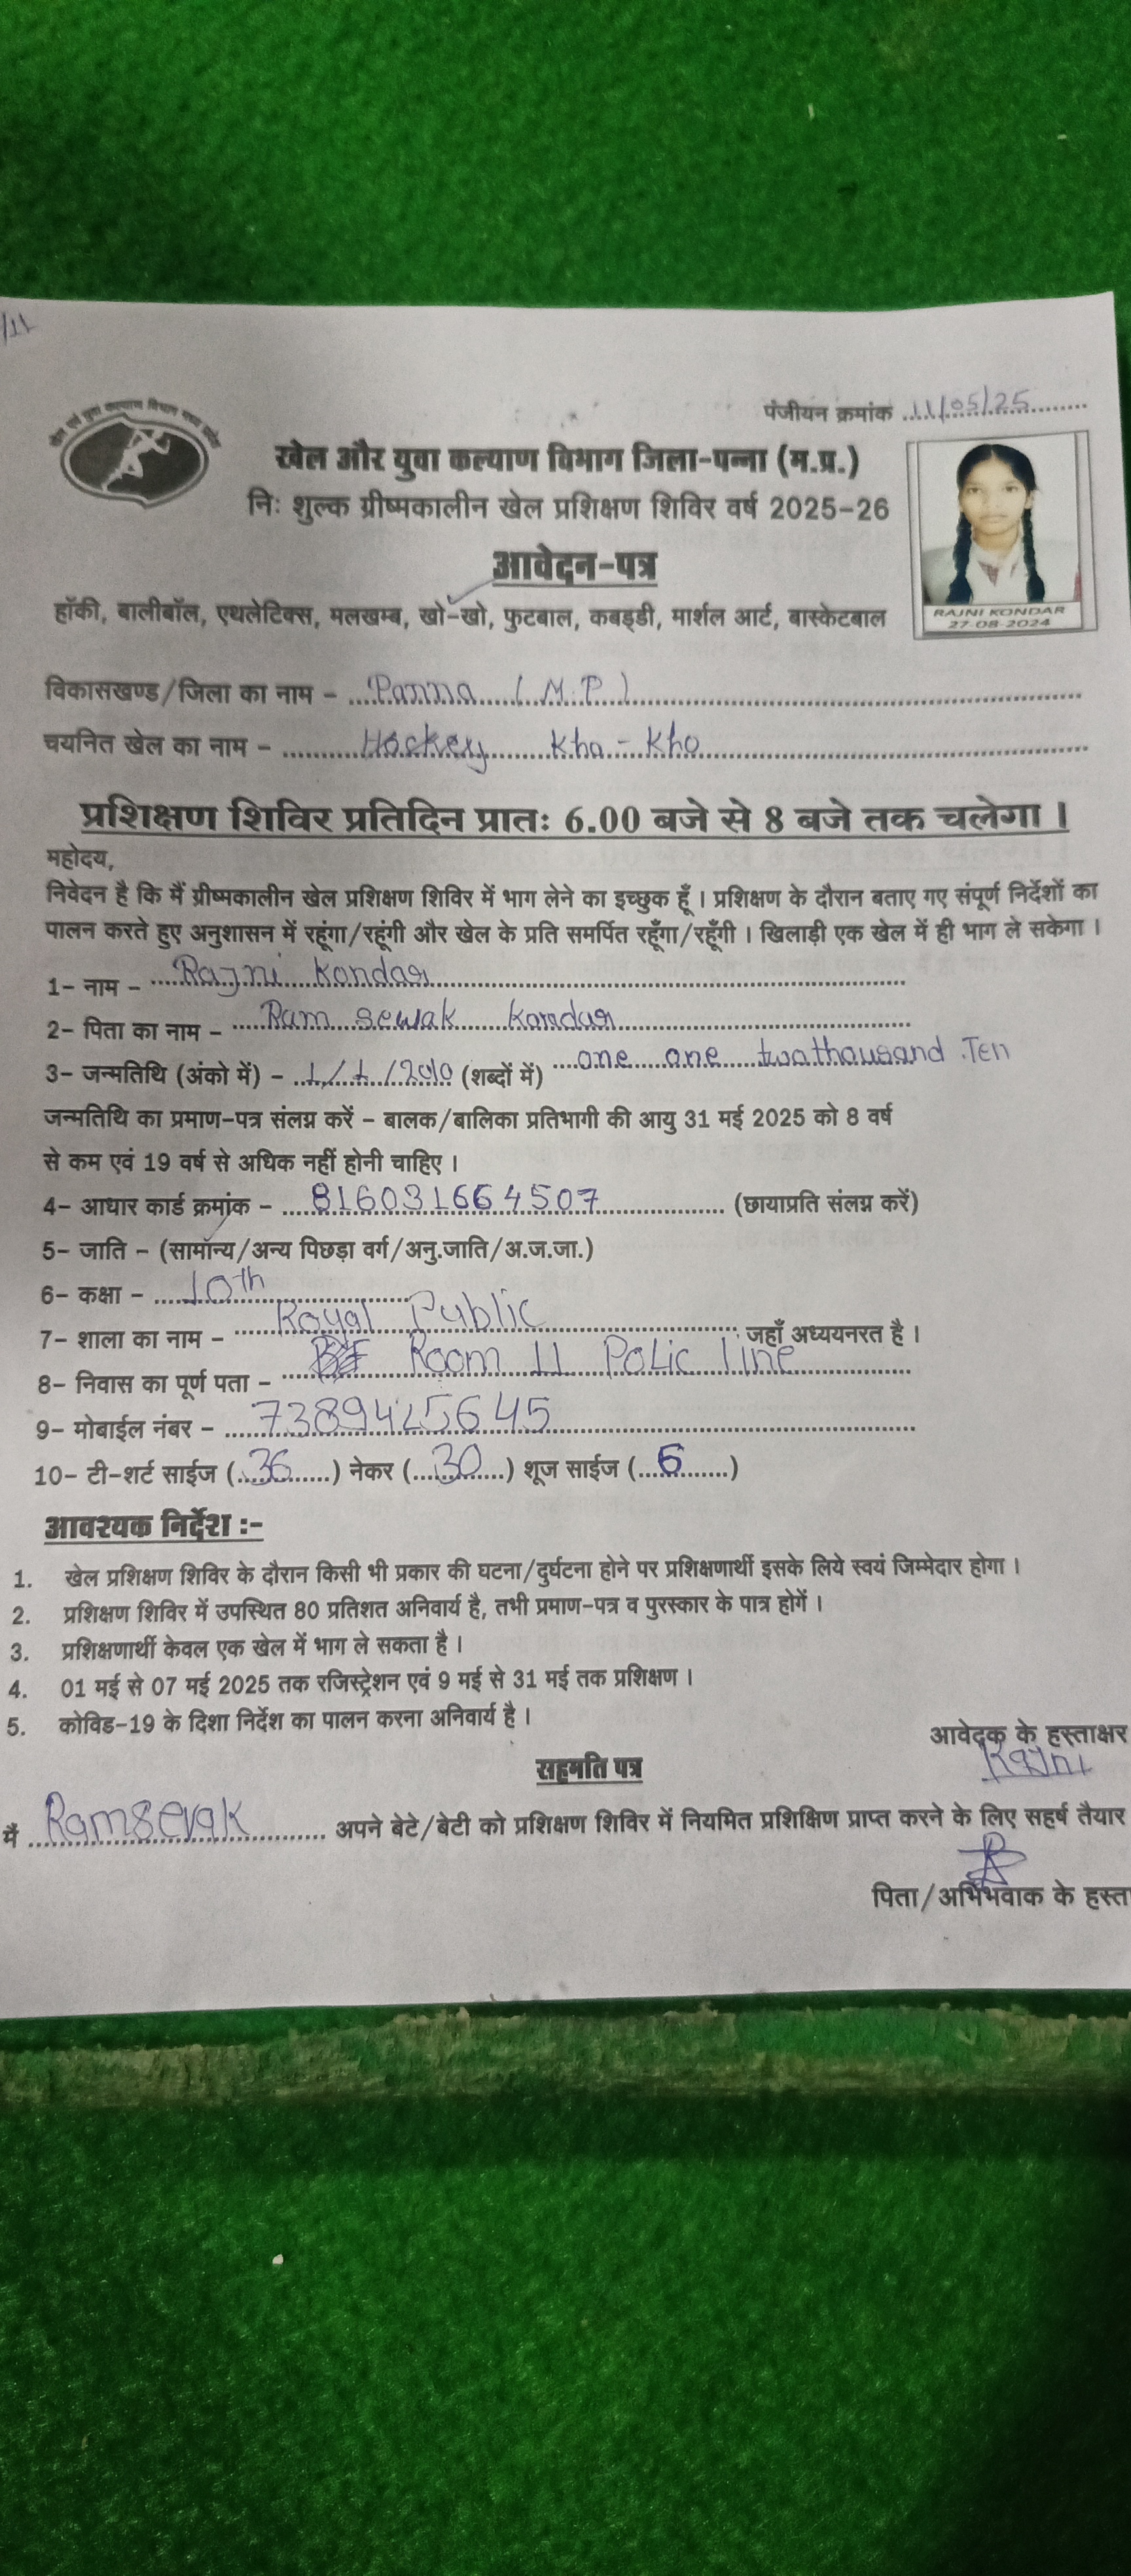 /11
पंजीयन क्रमांक ...11/05/25...
खेल और युवा कल्याण विभाग जिला-पन्ना (म.प्र.)
निः शुल्क ग्रीष्मकालीन खेल प्रशिक्षण शिविर वर्ष 2025-26
आवेदन-पत्र
RAJNI KONDAR
27-08-2024
हॉकी, बालीबॉल, एथलेटिक्स, मलखम्ब, खो-खो, फुटबाल, कबड्डी, मार्शल आर्ट, बास्केटबाल
विकासखण्ड/जिला का नाम - Panna (M.P)
चयनित खेल का नाम - Hockey Kho-Kho
प्रशिक्षण शिविर प्रतिदिन प्रातः 6.00 बजे से 8 बजे तक चलेगा।
महोदय,
निवेदन है कि मैं ग्रीष्मकालीन खेल प्रशिक्षण शिविर में भाग लेने का इच्छुक हूँ। प्रशिक्षण के दौरान बताए गए संपूर्ण निर्देशों का
पालन करते हुए अनुशासन में रहूंगा/रहूंगी और खेल के प्रति समर्पित रहूँगा/रहूँगी। खिलाड़ी एक खेल में ही भाग ले सकेगा।
1- नाम - Rajni Kondar
2- पिता का नाम - Ram sewak Kondar
3- जन्मतिथि (अंको में) - 1/1/2010 (शब्दों में) one one twothousand Ten
जन्मतिथि का प्रमाण-पत्र संलग्न करें - बालक/बालिका प्रतिभागी की आयु 31 मई 2025 को 8 वर्ष
से कम एवं 19 वर्ष से अधिक नहीं होनी चाहिए।
4- आधार कार्ड क्रमांक - 816031664507 (छायाप्रति संलग्न करें)
5- जाति - (सामान्य/अन्य पिछड़ा वर्ग/अनु.जाति/अ.ज.जा.)
6- कक्षा - 10th
7- शाला का नाम - Royal Public जहाँ अध्ययनरत है।
8- निवास का पूर्ण पता - Room 11 Polic line
9- मोबाईल नंबर - 7389425645
10- टी-शर्ट साईज (36) नेकर (30) शूज साईज (6)
आवश्यक निर्देश :-
1. खेल प्रशिक्षण शिविर के दौरान किसी भी प्रकार की घटना/दुर्घटना होने पर प्रशिक्षणार्थी इसके लिये स्वयं जिम्मेदार होगा।
2. प्रशिक्षण शिविर में उपस्थित 80 प्रतिशत अनिवार्य है, तभी प्रमाण-पत्र व पुरस्कार के पात्र होगें।
3. प्रशिक्षणार्थी केवल एक खेल में भाग ले सकता है।
4. 01 मई से 07 मई 2025 तक रजिस्ट्रेशन एवं 9 मई से 31 मई तक प्रशिक्षण।
5. कोविड-19 के दिशा निर्देश का पालन करना अनिवार्य है।
आवेदक के हस्ताक्षर
Rajni
सहमति पत्र
मैं Ramsevak अपने बेटे/बेटी को प्रशिक्षण शिविर में नियमित प्रशिक्षिण प्राप्त करने के लिए सहर्ष तैयार
पिता/अभिभवाक के हस्ता